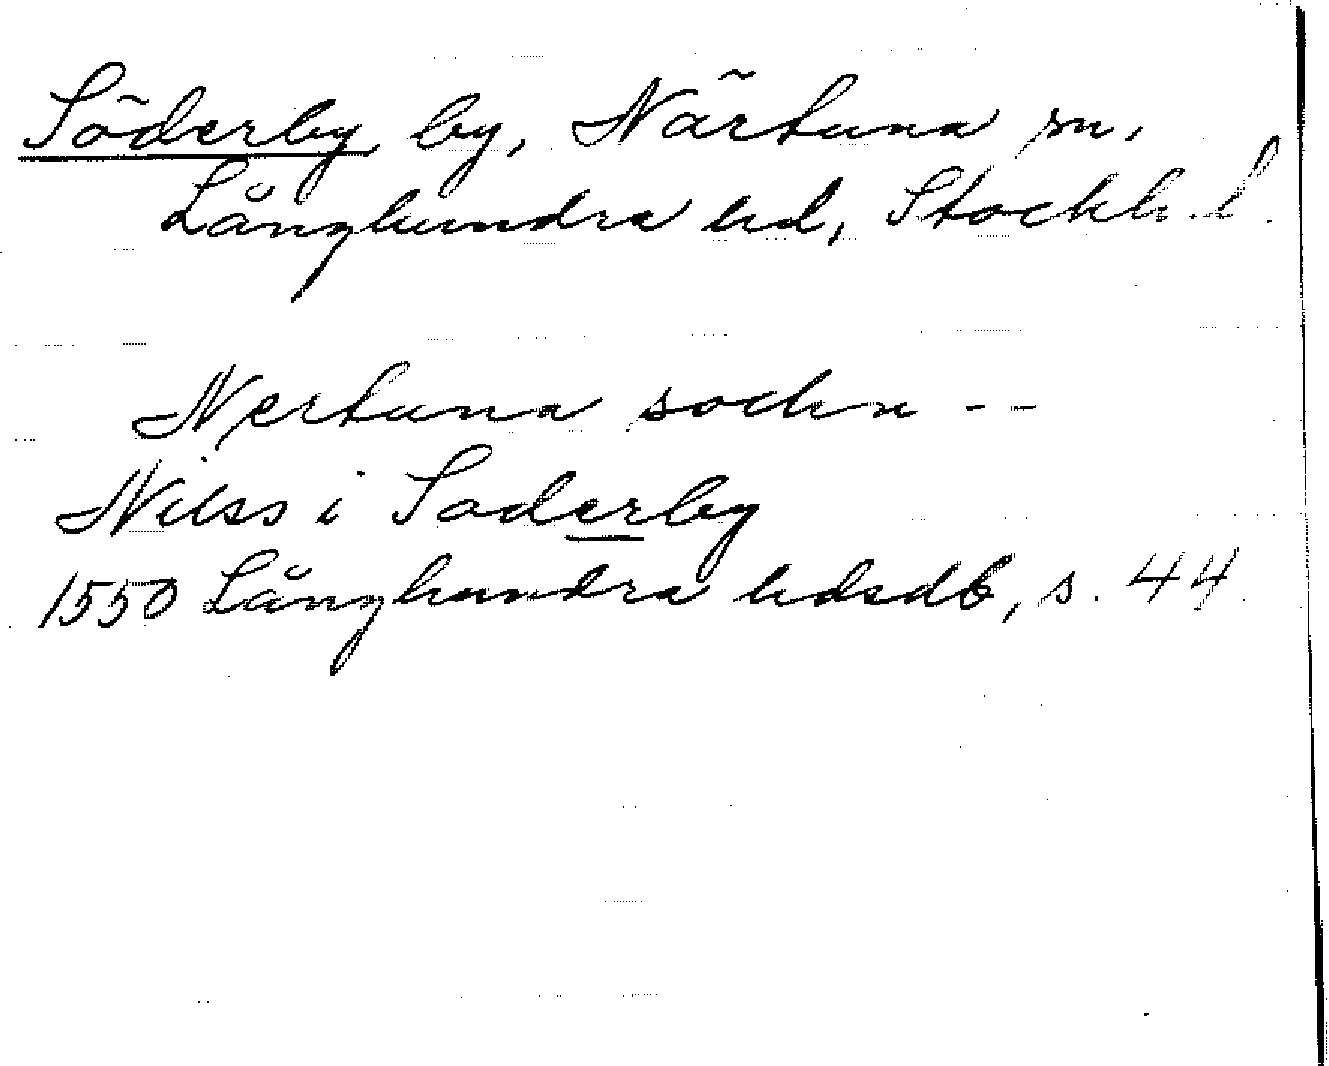 Söderby by, Närtuna sn,
Långhundra hd, Stockh. l.
Nertuna sochn --
Nilss i Soderby
1550 Långhundra hdsdb, s. 44.